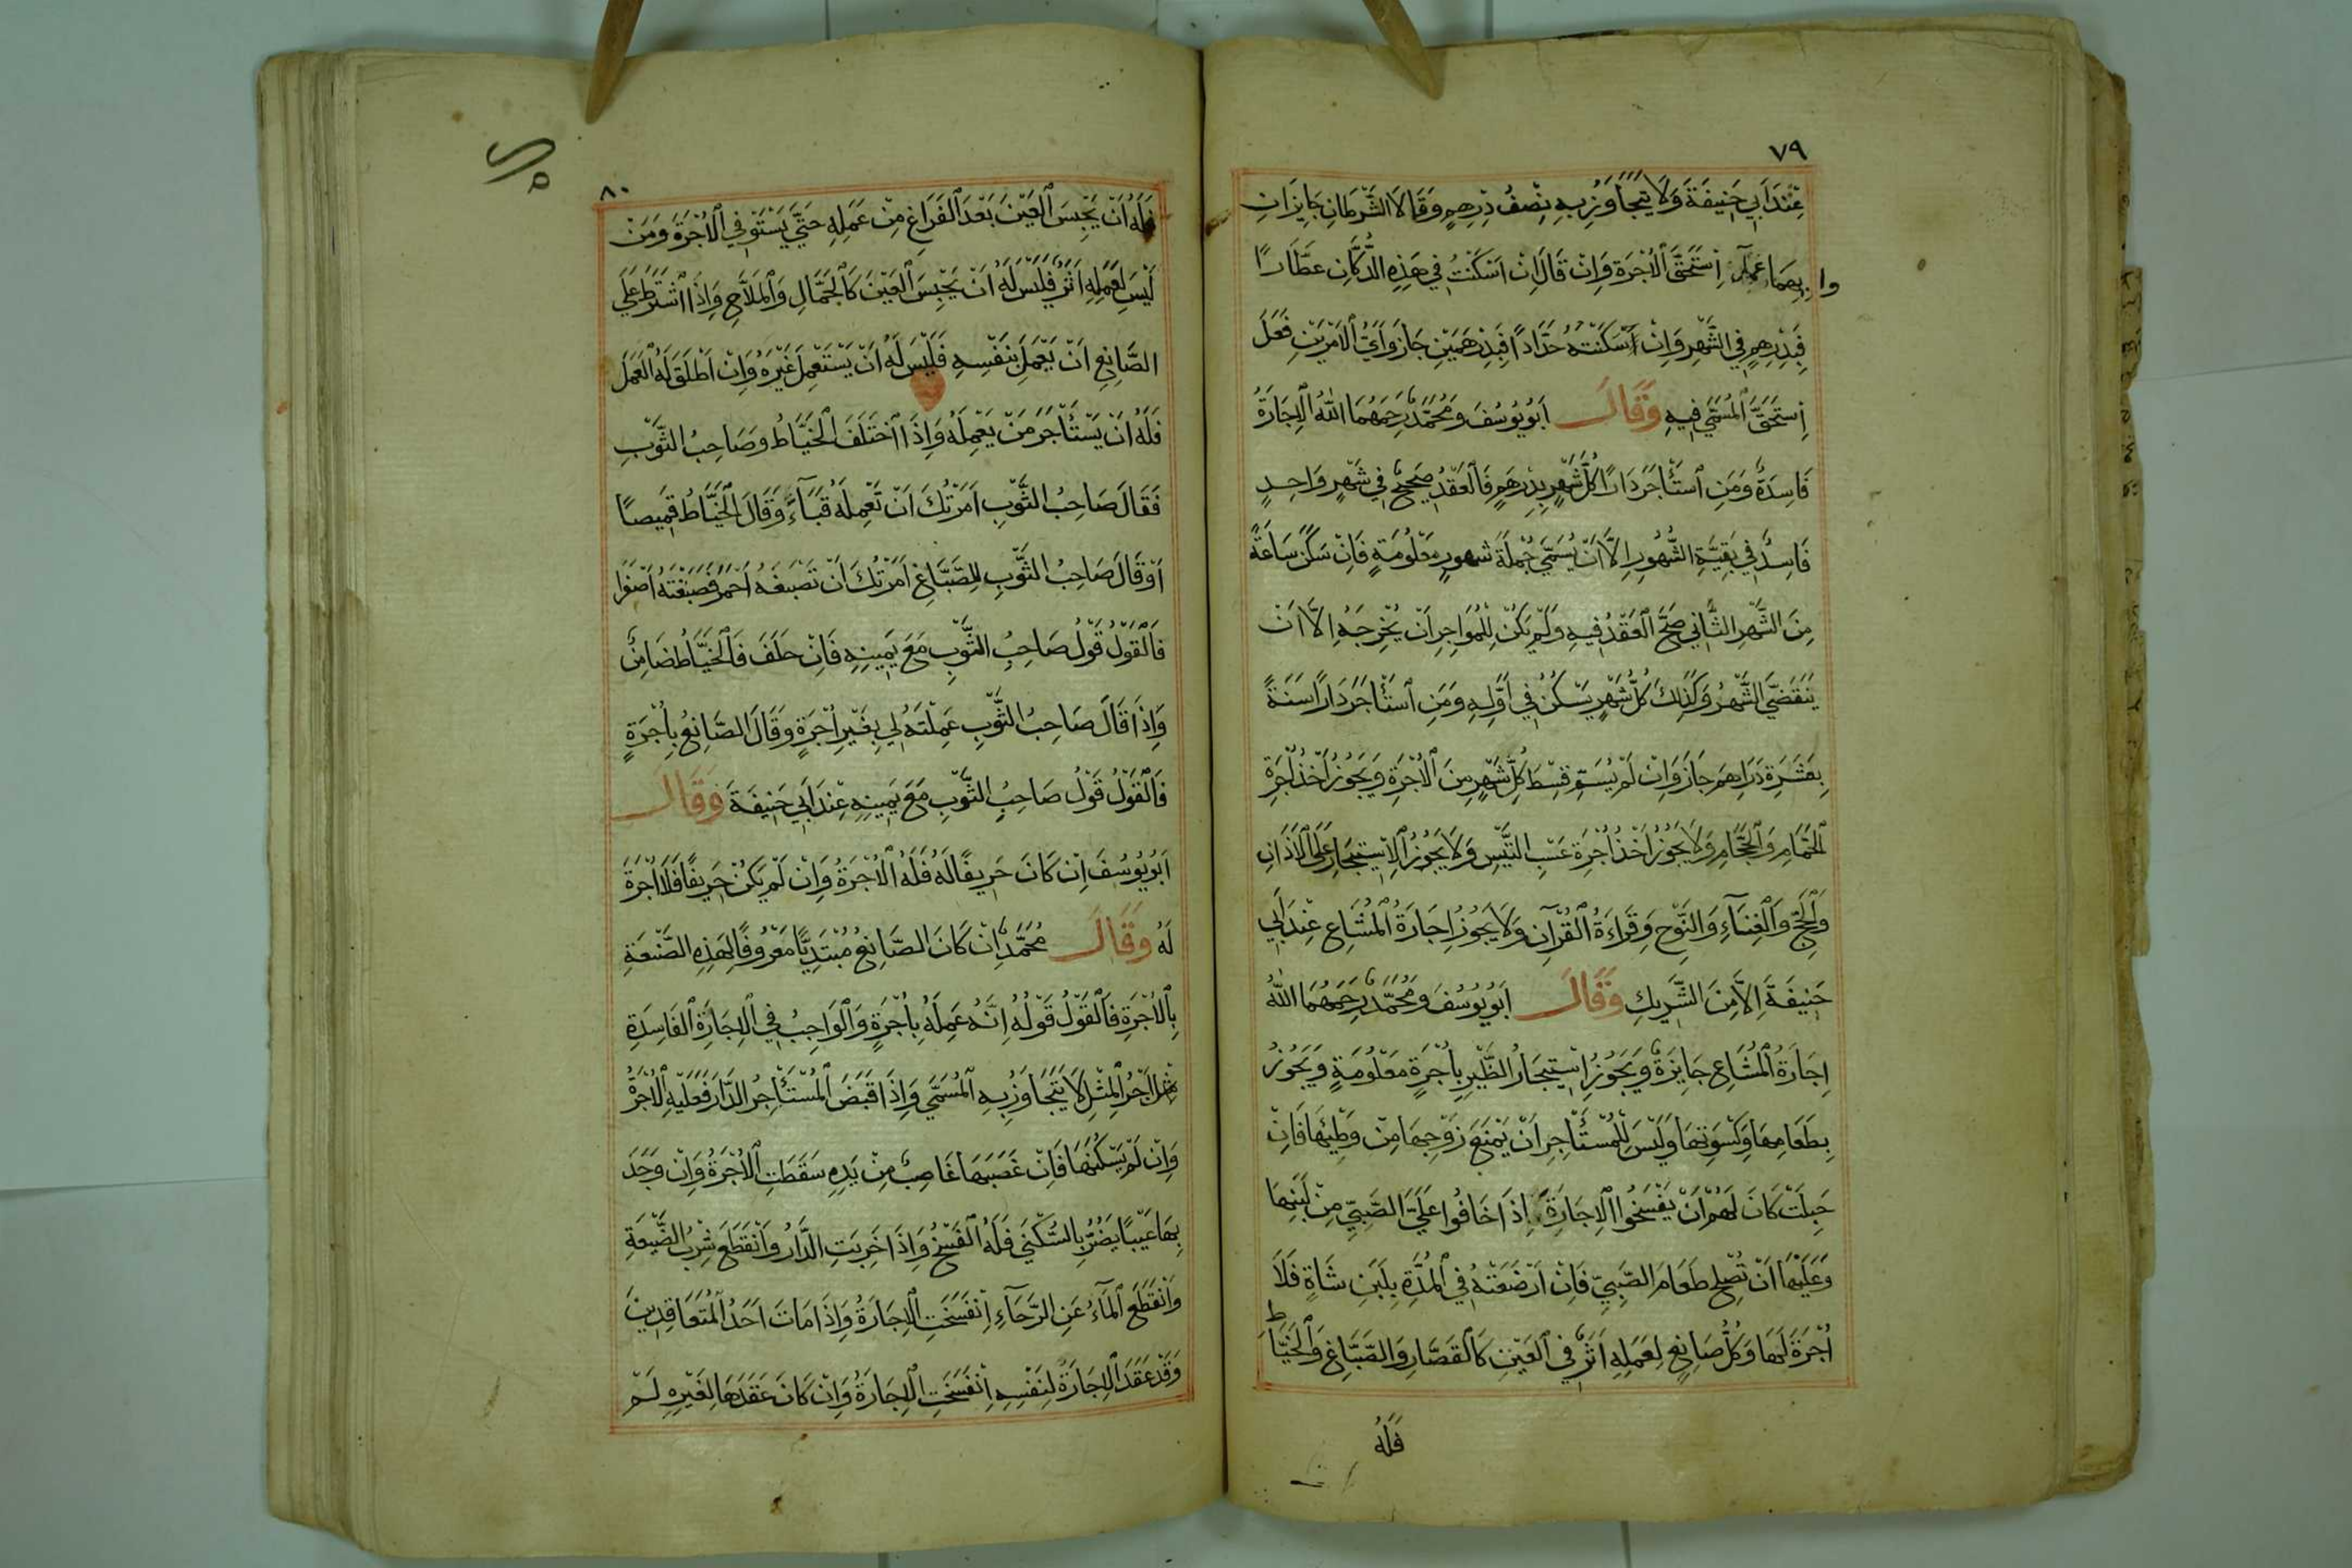 ٧٩
عِنْدَ اَبِي حَنِيفَةَ وَلَا يَتَجَاوَزُ بِهِ نِصْفُ دِرْهِمٍ وَقَالَا الشَّرْطَانِ جَايِزَانِ
وا بِهِمَا عَمِلَ اِسْتَحَقَّ الْاُجْرَةَ وَاِنْ قَالَ اِنْ اَسْكَنْتُ فِي هَذِهِ الدُّكَّانِ عَطَّارًا
فَبِدِرْهِمٍ فِي الشَّهْرِ وَاِنْ اَسْكَنْتُهُ حَدَّادًا فَبِدِرْهَمَيْنِ جَازَ وَاَيَّ الْاَمْرَيْنِ فَعَلَ
اِسْتَحَقَّ الْمُسَمَّي فِيهِ وَقَالَ اَبُويُوسُفَ وَمُحَمَّدٌ رَحِمَهُمَا اللهُ الْاِجَارَةُ
فَاسِدَةٌ وَمَنِ اسْتَأْجَرَ دَارًا كُلَّ شَهْرٍ بِدِرْهَمٍ فَالْعَقْدُ صَحِيحٌ فِي شَهْرٍ وَاحِدٍ
فَاسِدٌ فِي بَقِيَّةِ الشُّهُورِ اِلَّا اَنْ يُسَمِّيَ جُمْلَةَ شُهُورٍ مَعْلُومَةٍ فَاِنْ سَكَنَ سَاعَةً
مِنَ الشَّهْرِ الثَّانِي صَحَّ الْعَقْدُ فِيهِ وَلَمْ يَكُنْ لِلْمُوَاجِرِ اَنْ يُخْرِجَهُ اِلَّا اَنْ
يَنْقَضِيَ الشَّهْرُ وَكَذَلِكَ كُلُّ شَهْرٍ يَسْكُنُ فِي اَوَّلِهِ وَمَنِ اسْتَأْجَرَ دَارًا سَنَةً
بِعَشَرَةِ دَرَاهِمَ جَازَ وَاِنْ لَمْ يُسَمِّ قِسْطَ كُلِّ شَهْرٍ مِنَ الْاُجْرَةِ وَيَجُوزُ اَخْذُ اُجْرَةِ
الْحَمَّامِ وَالْحَجَّامِ وَلَا يَجُوزُ اَخْذُ اُجْرَةِ عَسْبِ التَّيْسِ وَلَا يَجُوزُ الْاِسْتِيجَارُ عَلَي الْاَذَانِ
وَالْحَجِّ وَالْغِنَآءِ وَالنَّوْحِ وَقِرَاءَةُ الْقُرْآنِ وَلَا يَجُوزُ اِجَارَةُ الْمُشَاعِ عِنْدَ اَبِي
حَنِيفَةَ اِلَّا مِنَ الشَّرِيكِ وَقَالَ اَبُويُوسُفَ وَمُحَمَّدٌ رَحِمَهُمَا اللهُ
اِجَارَةُ الْمُشَاعِ جَايِزَةٌ وَيَجُوزُ اِسْتِيجَارُ الظِّيرِ بِاُجْرَةٍ مَعْلُومَةٍ وَيَجُوزُ
بِطَعَامِهَا وَكِسْوَتِهَا وَلَيْسَ لِلْمُسْتَأْجِرِ اَنْ يَمْنَعَ زَوْجِهَا مِنْ وَطْئِهَا فَاِنْ
حَبِلَتْ كَانَ لَهُمْ اَنْ يَفْسَخُوا الْاِجَارَةَ اِذَا خَافُوا عَلَي الصَّبِيِّ مِنْ لَبَنِهَا
وَعَلَيْهَا اَنْ تُصْلِحَ طَعَامَ الصَّبِيِّ فَاِنْ اَرْضَعَتْهُ فِي الْمُدَّةِ بِلَبَنِ شَاةٍ فَلَا
اُجْرَةَ لَهَا وَكُلُّ صَانِعٍ لِعَمَلِهِ اَثَرٌ فِي الْعَيْنِ كَالْقَصَّارِ وَالصَّبَّاغِ وَالْخَيَّاط
فَلَهُ
٨٠
فَلَهُ اَنْ يَحْبِسَ الْعَيْنَ بَعْدَ الْفَرَاغِ مِنْ عَمَلِهِ حَتَّي يَسْتَوْفِي الْاُجْرَةَ وَمَنْ
لَيْسَ لِعَمَلِهِ اَثَرٌ فَلَيْسَ لَهُ اَنْ يَحْبِسَ الْعَيْنَ كَالْحَمَّالِ وَالْمَلَّاحِ وَاِذَا اشْتَرَطَ عَلَي
الصَّانِعِ اَنْ يَعْمَلَ بِنَفْسِهِ فَلَيْسَ لَهُ اَنْ يَسْتَعْمِلَ غَيْرَهُ وَاِنْ اَطْلَقَ لَهُ الْعَمَلَ
فَلَهُ اَنْ يَسْتَأْجَرَ مَنْ يَعْمِلَهُ وَاِذَا اخْتَلَفَ الْخَيَّاطُ وَصَاحِبُ الثَّوْبِ
فَقَالَ صَاحِبُ الثَّوْبِ اَمَرْتُكَ اَنْ تَعْمِلَهُ قَبَآءً وَقَالَ الْخَيَّاطُ قَمِيصًا
اَوْ قَالَ صَاحِبُ الثَّوْبِ لِلصَّبَّاغِ اَمَرْتُكَ اَنْ تَصْبَغَهُ اَحْمَرَ فَصَبَغْتَهُ اَصْفَرَا
فَالْقَوْلُ قَوْلُ صَاحِبِ الثَّوْبِ مَعَ يَمِينِهِ فَاِنْ حَلَفَ فَالْخَيَّاطُ ضَامِنٌ
وَاِذَا قَالَ صَاحِبُ الثَّوْبِ عَمِلْتَهُ لِي بِغَيْرِ اُجْرَةٍ وَقَالَ الصَّانِعُ بِاُجْرَةٍ
فَالْقَوْلُ قَوْلُ صَاحِبُ الثَّوْبِ مَعَ يَمِينِهِ عِنْدَ اَبِي حَنِيفَةَ وَقَالَ
اَبُويُوسُفَ اِنْ كَانَ حَرِيفًا لَهُ فَلَهُ الْاُجْرَةُ وَاِنْ لَمْ يَكُنْ حَرِيفًا فَلَا اُجْرَةَ
لَهُ وَقَالَ مُحَمَّدٌ اِنْ كَانَ الصَّانِعُ مُبْتَدِيًّا مَعْرُوفًا لِهَذِهِ الصَّنْعَةِ
بِالْاُجْرَةِ فَالْقَوْلُ قَوْلُهُ اِنَّهُ عَمِلَهُ بِاُجْرَةٍ وَالْوَاجِبُ فِي الْاِجَارَةِ الْفَاسِدَةِ
اَجْرُ الْمِثْلِ لَا يَتَجَاوَزُ بِهِ الْمُسَمَّي وَاِذَا قَبَضَ الْمُسْتَأْجِرُ الدَّارَ فَعَلَيْهِ الْاُجْرَةُ
وَاِنْ لَمْ يَسْكُنْهَا فَاِنْ غَصَبَهَا غَاصِبٌ مِنْ يَدِهِ سَقَطَتِ الْاُجْرَةُ وَاِنْ وَجَدَ
بِهَا عَيْبًا يَضُرُّ بِالسُّكْنَي فَلَهُ الْفَسْخُ وَاِذَا خَرِبَتِ الدَّارُ وَانْقَطَعَ شِرْبُ الضَّيْعَةِ
وَانْقَطَعَ الْمَآءُ عَنِ الرَّحَآءِ اِنْفَسَخَتِ الْاِجَارَةُ وَاِذَا مَاتَ اَحَدُ الْمُتَعَاقِدِينَ
وَقَدْ عَقَدَ الْاِجَارَةَ لِنَفْسِهِ اِنْفَسَخَتِ الْاِجَارَةُ وَاِنْ كَانَ عَقَدَهَا لِغَيْرِهِ لَمْ